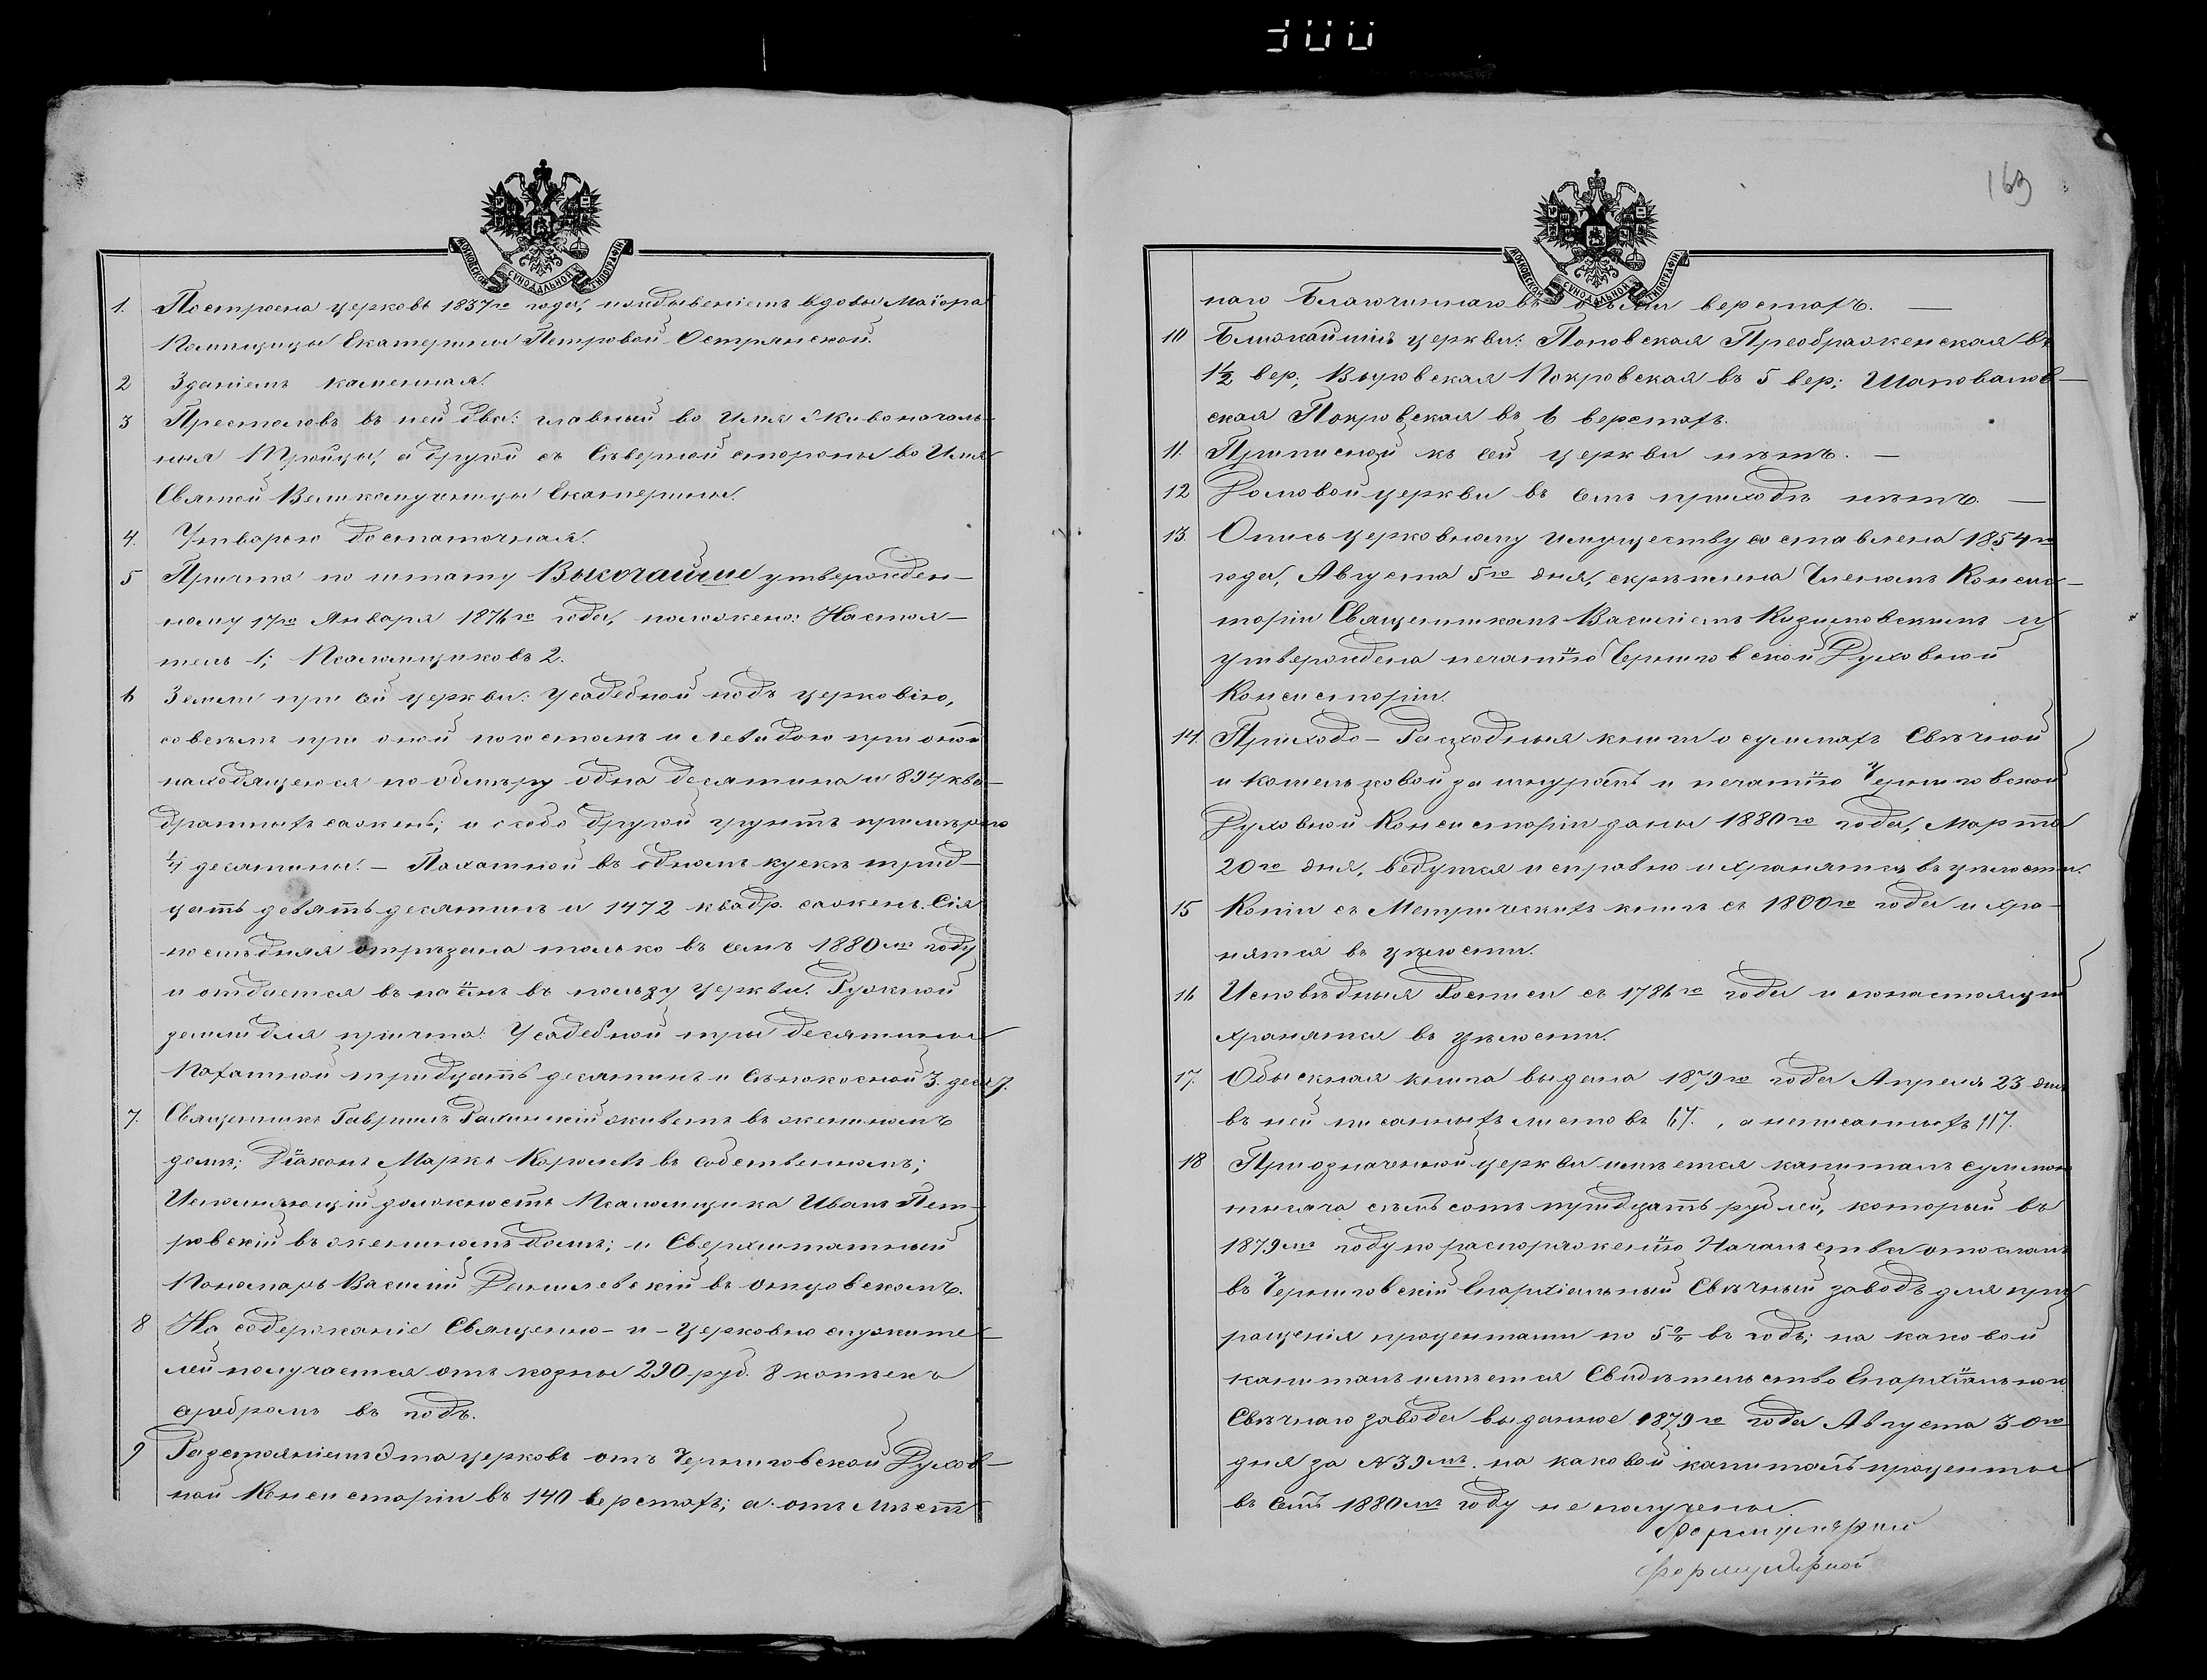 300
169
МОСКОВСКОЙ СѴНОДАЛЬНОЙ ТИПОГРАФІИ
1. Построена церковь 1837го года, иждивеніемъ вдовы Маіора
Помпицы Екатерины Петровой Острянской.
2 Зданіемъ каменная.
3 Престоловъ въ ней два: главный во Имя Живоначаль-
ныя Тройцы, а другой съ Сѣверной стороны во Имя
Святой Великомученицы Екатерины.
4. Утварью достаточная.
5 Причта по штату Высочайше утвержден-
ному 17го Января 1876го года, положено: Настоя-
тель 1; Псаломщиковъ 2.
6 Земли при сей церкви: Усадебной подъ церковію,
совсѣмъ при оной погостомъ и левадою при оной
находящеюся по обмѣру одна десятина и 894 ква-
дратныхъ сажень; и особо другой грунтъ примѣрно
1/4 десятины. — Пахатной въ одномъ кускѣ трид-
цать девять десятинъ и 1472 квадр. сажен. Сія
послѣдняя отрѣзана только въ семъ 1880мъ году
и отдается въ наемъ въ пользу церкви. Ружной
земли для причта: Усадебной три десятины
Пахатной тридцать десятинъ и Сѣнокосной 3. десят.
7. Священникъ Гавріилъ живетъ въ женином
домѣ; Діаконъ Маркъ Королевъ въ собственномъ;
Исполняющій должность Псаломщика Иванъ Пет-
ровскій въ жениномъ домѣ; и Сверхштатный
Пономарь Василій Данилевскій въ отцовскомъ.
8 На содержаніе Священно-и-церковно служите-
лей получается отъ казны 290 руб. 8 копѣекъ
сребромъ въ годъ.
9 Разстояніемъ эта церковь отъ Черниговской Духов-
ной Консисторіи въ 140 верстахъ; а отъ мѣст-
наго Благочиннаго въ верстахъ. —
10 Ближайшія церкви: Поповская Преображенская въ
1½ вер; Выровская Покровская въ 5 вер; Шаповалов-
ская Покровская въ 6 верстахъ.
11. Приписной къ сей церкви нѣтъ. —
12 Домовой церкви въ семъ приходѣ нѣтъ. —
13. Опись церковному имуществу составлена 1854го
года, Августа 5го дня, скрѣплена Членомъ Консис-
торіи Священникомъ Василіемъ и
утверждена печатію Черниговской Духовной
Консисторіи.
14. Приходо-Расходныя книги о суммахъ Свѣчной
и кошельковой за шнуромъ и печатію Черниговской
Духовной Консисторіи даны 1880го года, Марта
20го дня, ведутся исправно и хранятся въ цѣлости.
15 Копіи съ Метрическихъ книгъ съ 1800го года и хра-
нятся въ цѣлости.
16 Исповѣдныя Росписи съ 1786го года и понастоящій
хранятся въ цѣлости.
17. Обыскная книга выдана 1879го года Апреля 23 дня
въ ней писанныхъ листовъ 67., а неписанныхъ 117.
18 При означенной церкви имѣется капиталъ суммою
тысяча семьсотъ тридцать рублей, который въ
1879мъ году по распоряженію Начальства отосланъ
въ Черниговскій Епархіальный Свѣчный заводъ для при-
ращенія процентами по 5% въ годъ; на каковой
капиталъ имѣется Свидѣтельство Епархіальнаго
Свѣчнаго завода выданное 1879го года Августа 30го
дня за №39мъ. на каковой капиталъ проценты
въ семъ 1880мъ году не получены.
формулярной